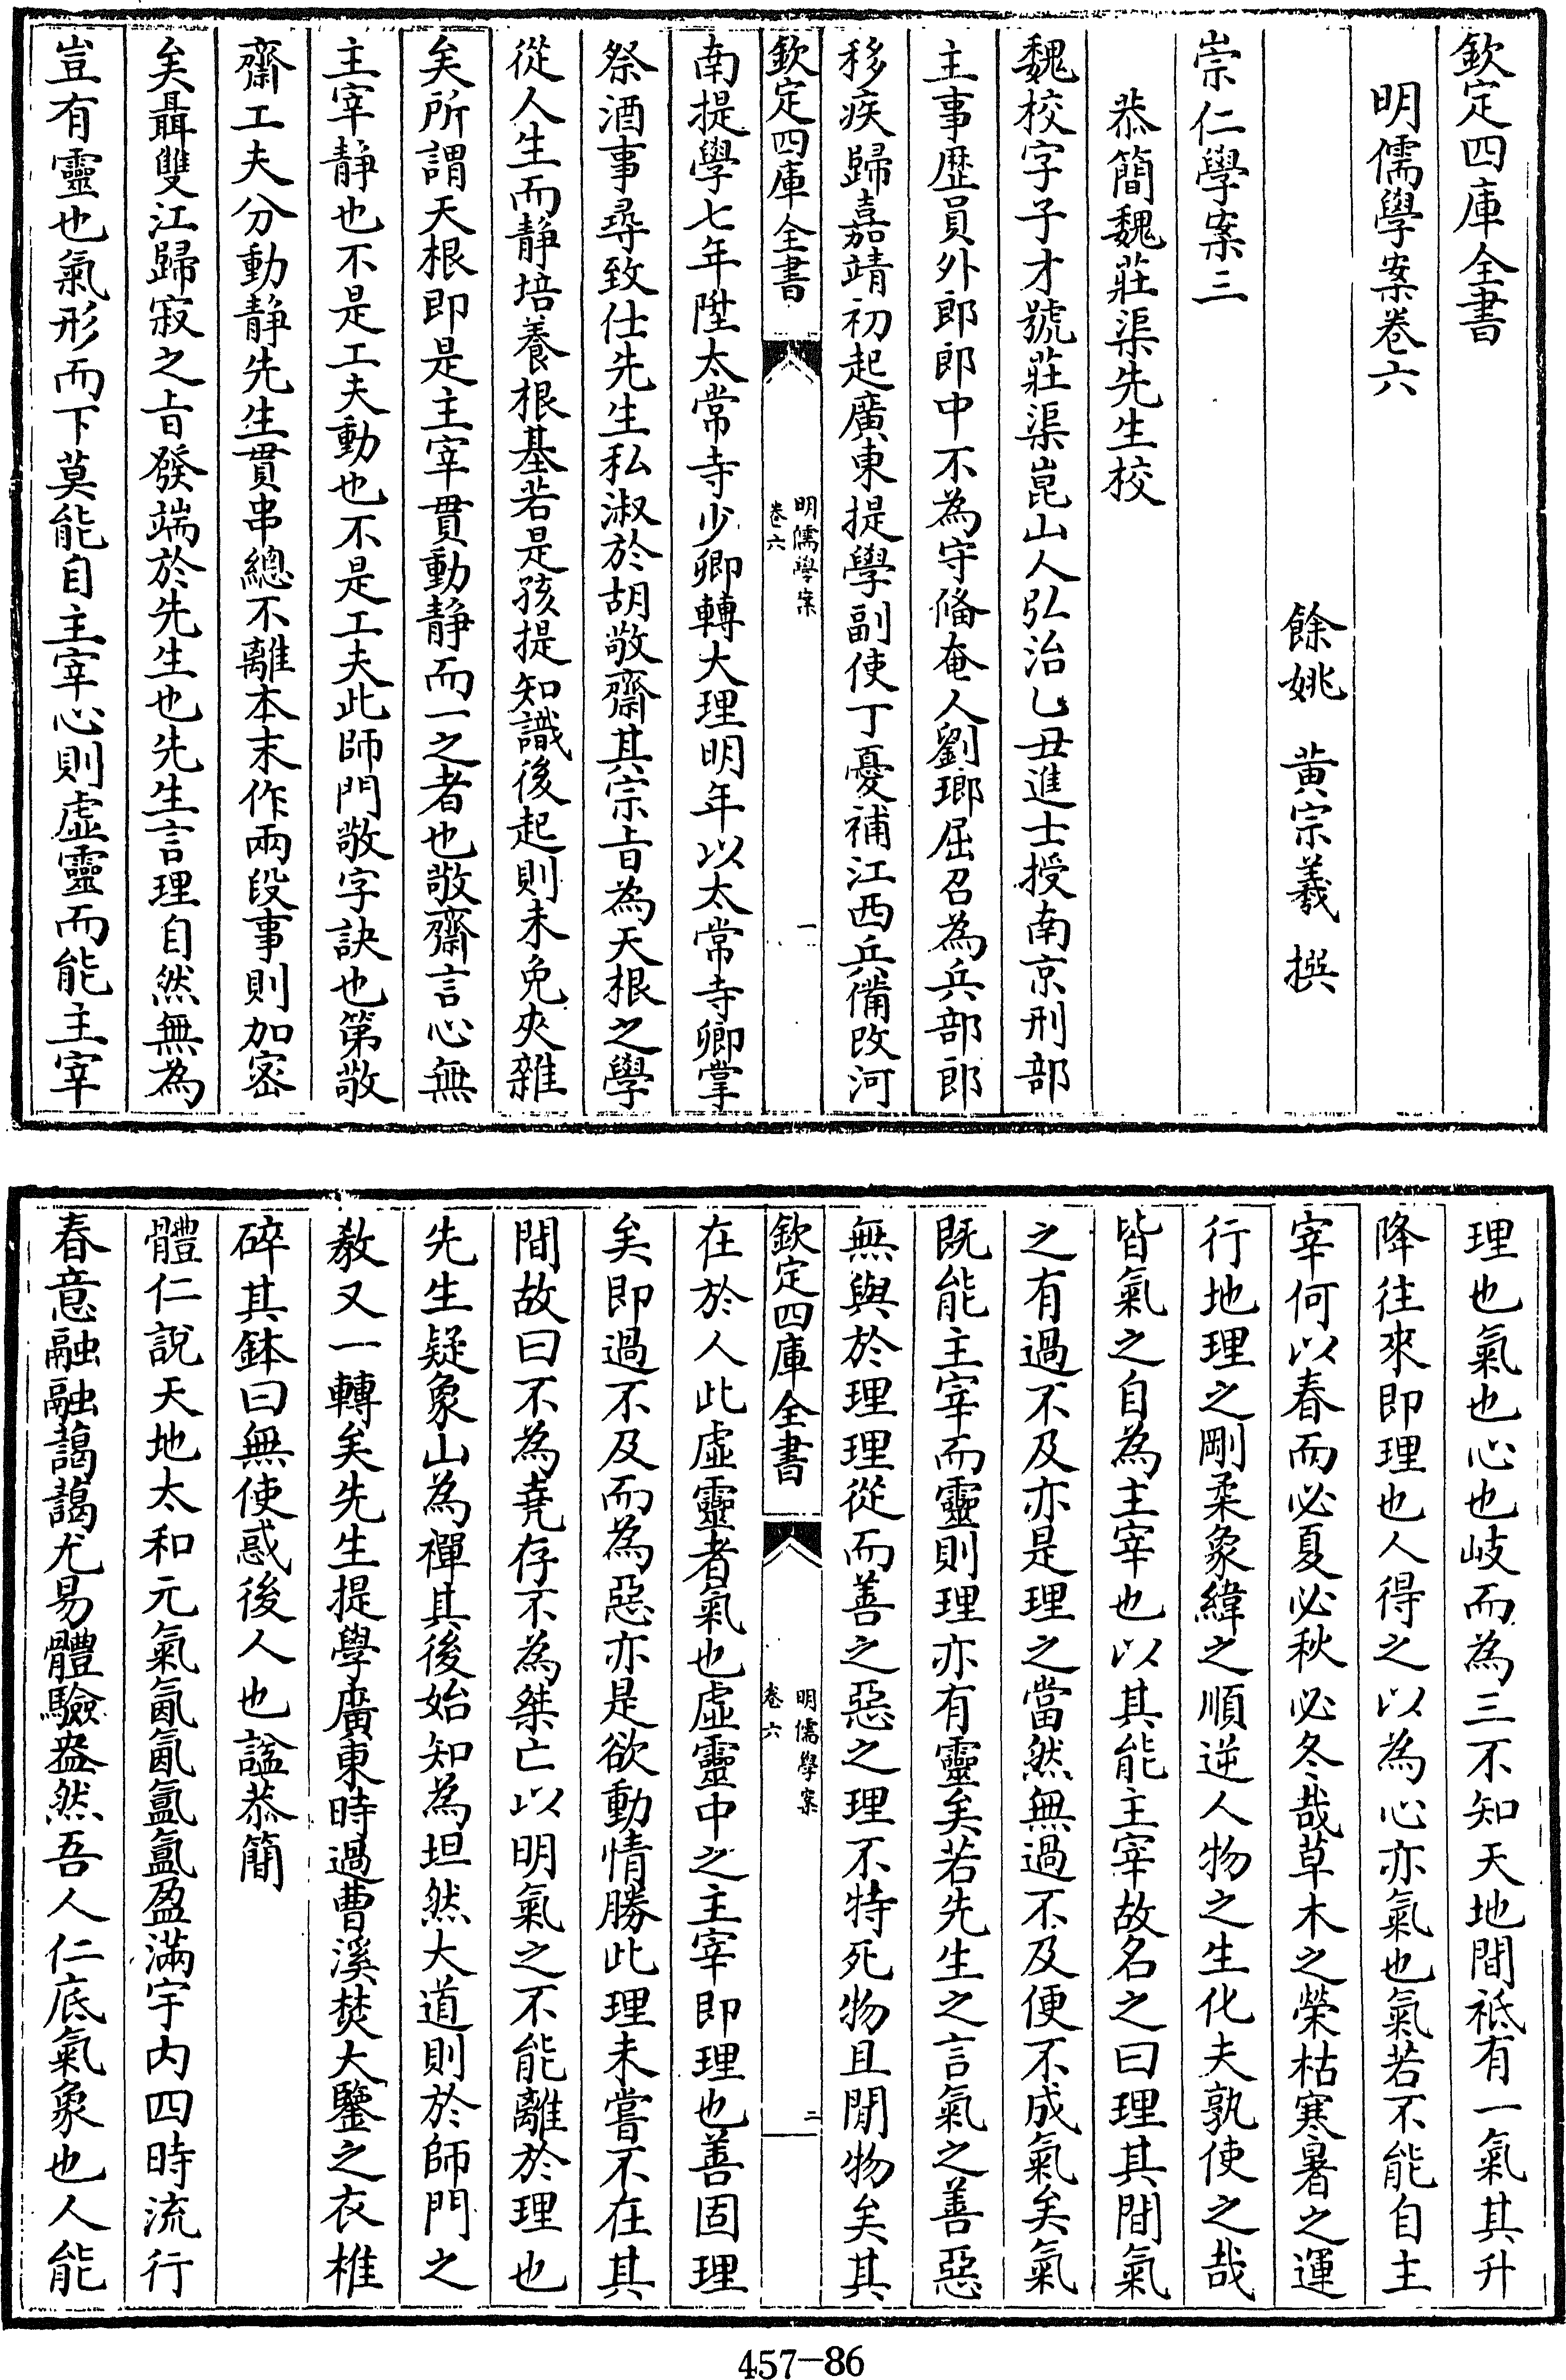 欽定四庫全書
明儒學案卷六
餘姚　黄宗羲　撰
崇仁學案三
恭簡魏莊渠先生校
魏校字子才號莊渠崑山人弘治乙丑進士授南京刑部
主事歴員外郎郎中不為守俻奄人劉瑯屈召為兵部郎
移疾歸嘉靖初起廣東提學副使丁憂補江西兵備改河
欽定四庫全書
明儒學案
卷六
一
南提學七年陞太常寺少卿轉大理明年以太常寺卿掌
祭酒事尋致仕先生私淑於胡敬齋其宗㫖為天根之學
從人生而靜培養根基若是孩提知識後起則未免夾雜
矣所謂天根即是主宰貫動靜而一之者也敬齋言心無
主宰靜也不是工夫動也不是工夫此師門敬字訣也第敬
齋工夫分動靜先生貫串總不離本末作兩段事則加宻
矣聶雙江歸寂之㫖發端於先生也先生言理自然無為
豈有靈也氣形而下莫能自主宰心則虚靈而能主宰
理也氣也心也岐而為三不知天地間祗有一氣其升
降往來即理也人得之以為心亦氣也氣若不能自主
宰何以春而必夏必秋必冬哉草木之榮枯寒暑之運
行地理之剛柔象緯之順逆人物之生化夫孰使之哉
皆氣之自為主宰也以其能主宰故名之曰理其間氣
之有過不及亦是理之當然無過不及便不成氣矣氣
既能主宰而靈則理亦有靈矣若先生之言氣之善惡
無與於理理從而善之惡之理不特死物且閒物矣其
欽定四庫全書
明儒學案
卷六
二
在於人此虚靈者氣也虚靈中之主宰即理也善固理
矣即過不及而為惡亦是欲動情勝此理未嘗不在其
間故曰不為堯存不為桀亡以明氣之不能離於理也
先生疑象山為禪其後始知為坦然大道則於師門之
教又一轉矣先生提學廣東時過曹溪焚大鑒之衣椎
碎其鉢曰無使惑後人也諡恭簡
體仁說天地太和元氣氤氤氳氳盈滿宇内四時流行
春意融融藹藹尤易體驗盎然吾人仁底氣象也人能
457-86